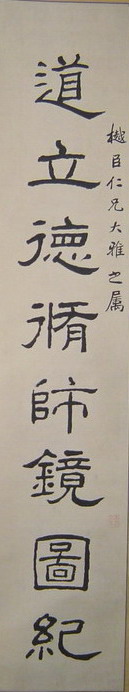 樾臣仁兄大雅之屬
道立德脩師鏡圖紀